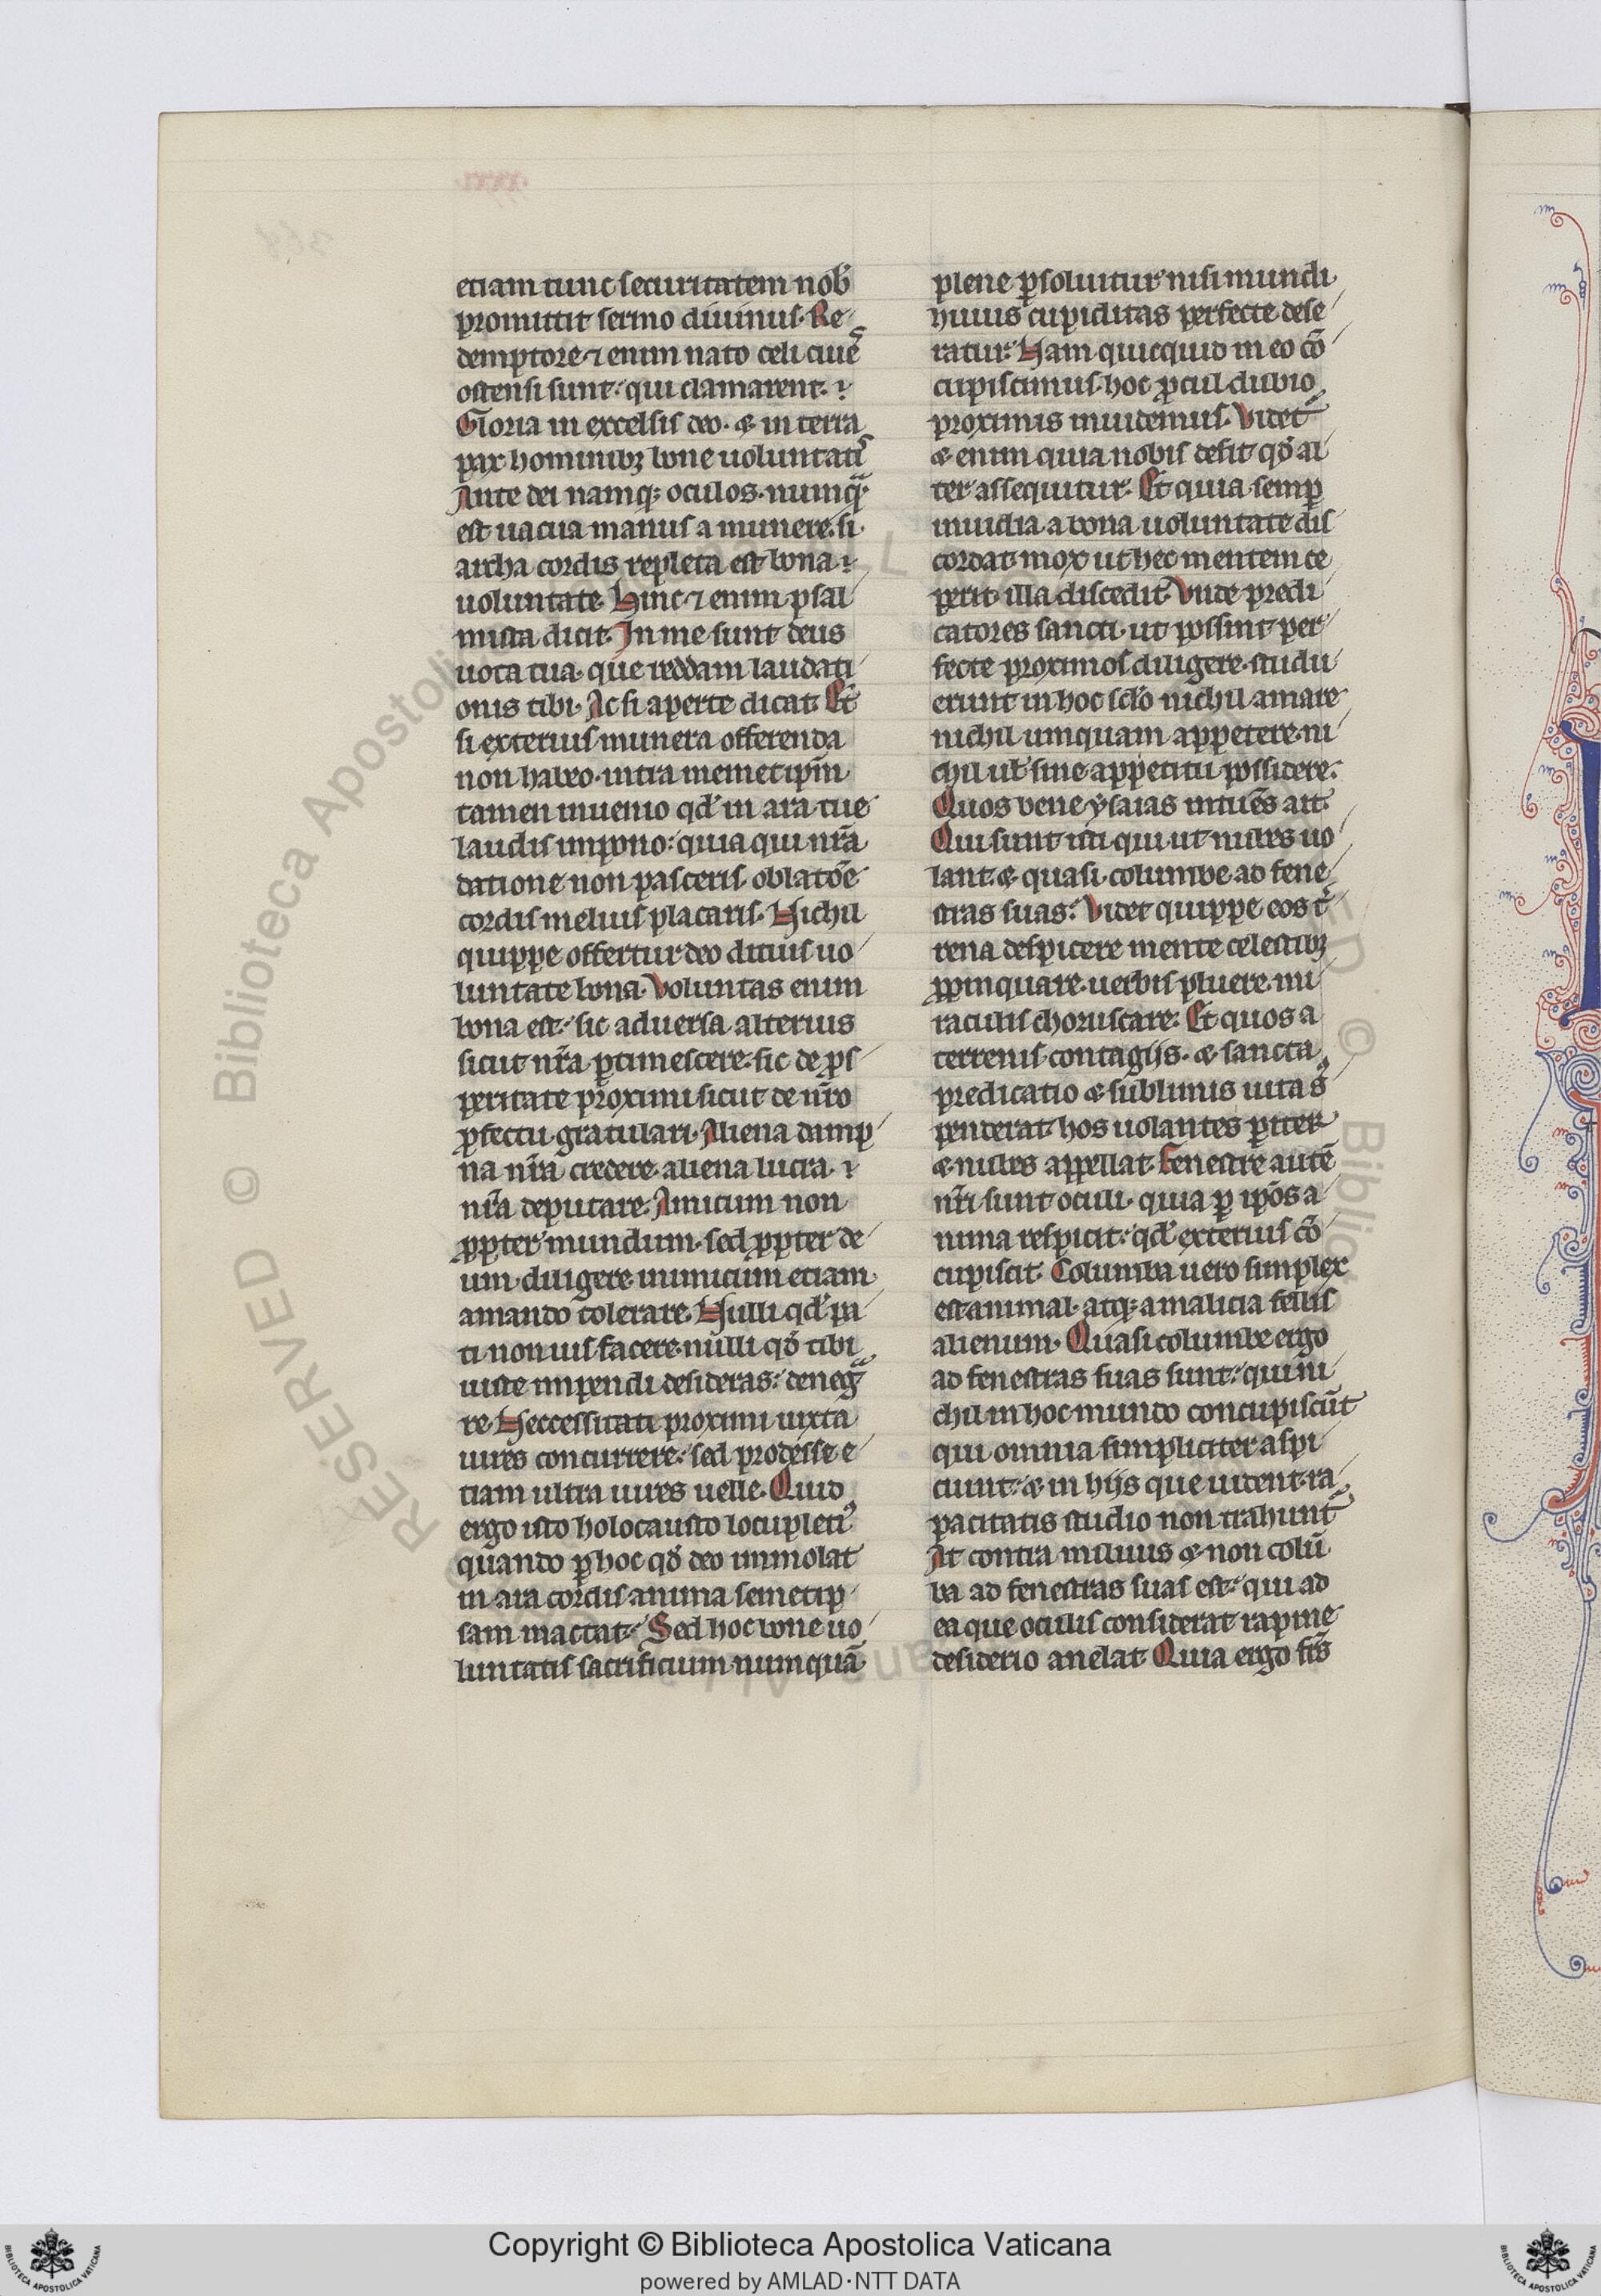 etiam tunc securitatem nob̄
promittit sermo diuinus. Re
demptore ⁊ enim nato celi ciuēs
ostensi sunt: qui clamarent. ⁊
Gloria in excelsis deo. & in terra
pax hominibꝫ bone uoluntatis
Ante dei namqꝫ oculos. numqᷓ
est uacua manus a munere. si
archa cordis repleta est bona ⁊
uoluntate. Hinc ⁊ enim psal
mista dicit. In me sunt deus
uota tua. que reddam laudati
onis tibi. Ac si aperte dicat. Et
si exterius munera offerenda
non habeo. intra memetipm̄
tamen inuenio qd̓ in ara tue
laudis impono: quia qui nr̄a
datione non pasceris. oblatōe
cordis melius placaris. Nichil
quippe offertur deo ditius uo
luntate bona. Voluntas enim
bona est: sic aduersa alterius
sicut nr̄a ꝑtimescere. sic de ꝓs
peritate proximi sicut de nr̄o
ꝓfectu gratulari. Aliena damp
na nr̄a credere. aliena lucra. ⁊
nr̄a deputare. Amicum non
ꝓpter mundum. sed ꝓpter de
um diligere. inimicum etiam
amando tolerare. Nulli qd̓ pa
ti non uis facere. nulli qd̓ tibi
iuste impendi desideras: denegᷓ
re. Neccessitati proximi iuxta
uires concurrere: sed prodesse e
tiam ultra uires uelle. Quid
ergo isto holocausto locupletiꝰ
quando ꝑ hoc qd̓ deo immolat
in ara cordis anima semetip
sam mactat: Sed hoc bone uo
luntatis sacrificium numquā
plene ꝑsoluitur nisi mundi
huius cupiditas perfecte dese
ratur: Nam quicquid in eo cō
cupiscimus. hoc ꝓcul dubio
proximis inuidemus. Videt᷑
& enim quia nobis desit qd̓ al
ter assequitur. Et quia semꝑ
inuidia a bona uoluntate dis
cordat. mox ut hec mentem ce
perit. illa discedit. Vnde predi
catores sancti. ut possint per
fecte proximos diligere. studu
erunt in hoc sclo̓ nichil amare
nichil umquam appetere. ni
chil ul̓ sine appetitu possidere.
Quos bene ysaias intuēs ait.
Qui sunt isti qui ut nubes uo
lant. & quasi columbe ad fene
stras suas: Videt quippe eos t̓
rena despicere. mente celestibꝫ
ꝓpinquare. uerbis pluere. mi
raculis choruscare. Et quos a
terrenis contagijs. & sancta
predicatio & sublimis uita sꝰ
penderat. hos uolantes ꝑiter
& nubes appellat. Fenestre autē
nr̄i sunt oculi. quia ꝑ ipōs a
nima respicit: qd̓ exterius cō
cupiscit. Columba uero simplex
est animal. atqꝫ a malicia fellis
alienum. Quasi columbe ergo
ad fenestras suas sunt: qui ni
chil in hoc mundo concupiscūt
qui omnia simpliciter aspi
ciunt: & in hijs que uident. ra
pacitatis studio non trahunt᷑
At contra miluus & non colū
ba ad fenestras suas est: qui ad
ea que oculis considerat rapine
desiderio anelat. Quia ergo frs̄
Copyright © Biblioteca Apostolica Vaticana
powered by AMLAD·NTT DATA